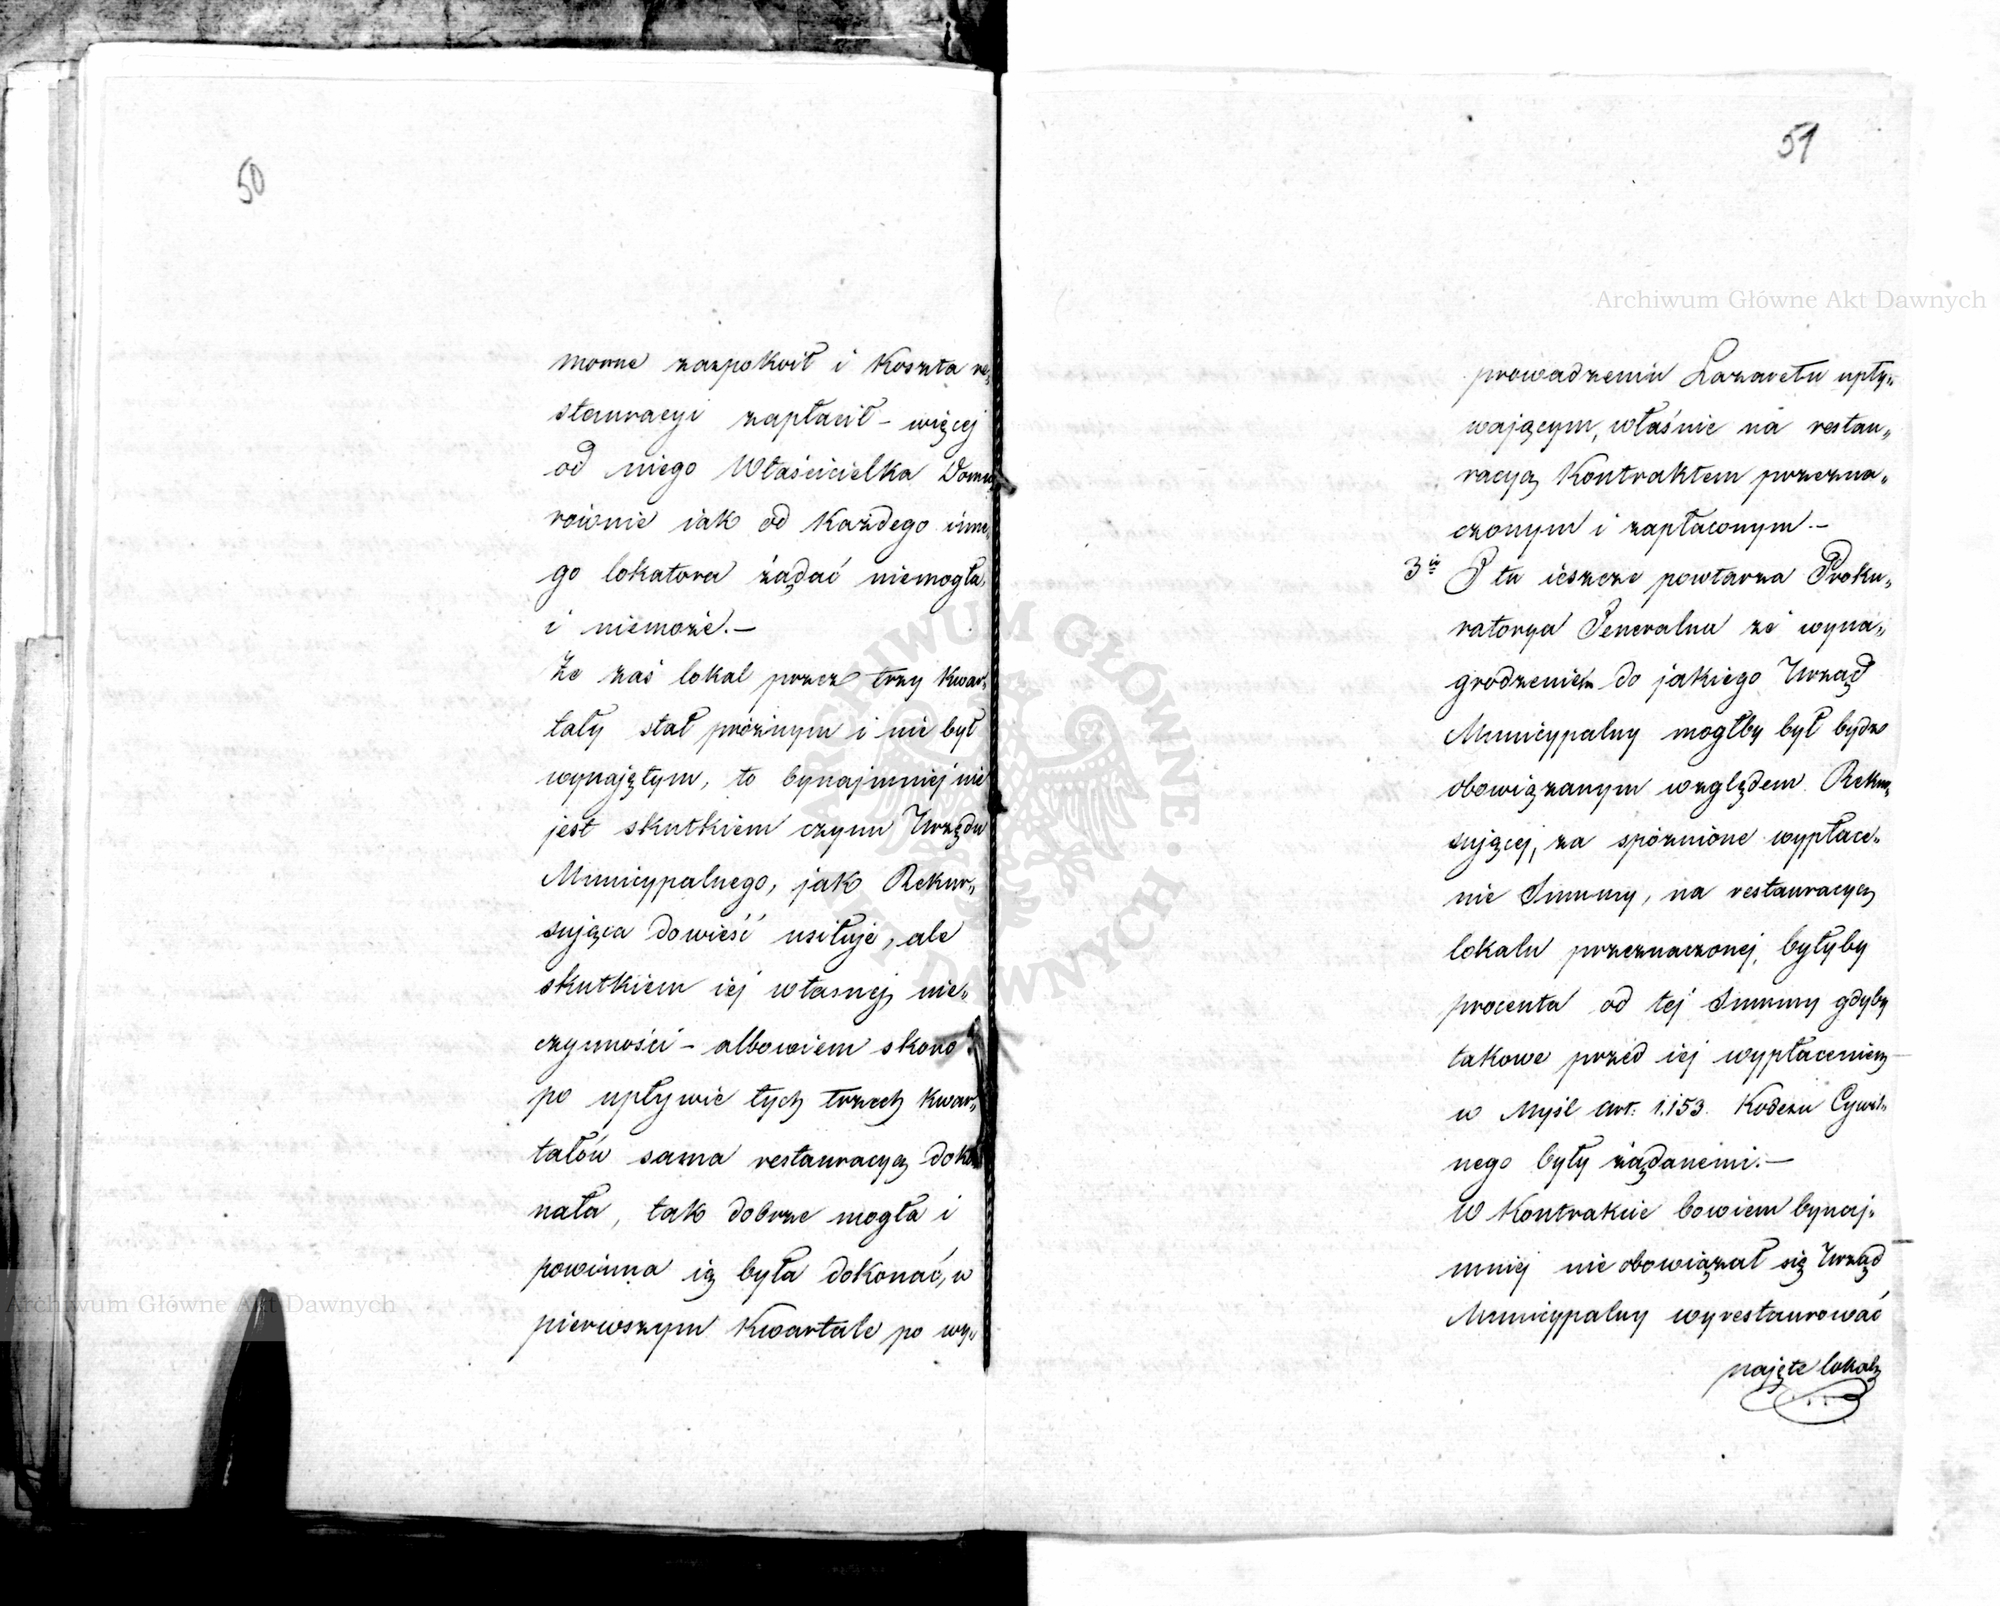 50
morne zaspokoił i koszta re„
stauracyi zapłacił – więcej
od niego Właścicielka Domu
rownie iak od każdego inne„
go lokatora żądać niemogła
i niemoże.–
Że zaś lokal przez trzy kwar„
tały stał próżnym i nie był
wynajętym, to bynajmniej nie
jest skutkiem czynu Urzędu
Municypalnego, jak Rekur„
sująca dowieść usiłuje, ale
skutkiem iej własnej nie„
czynności – albowiem skoro
po upływie tych trzech kwar„
tałów sama restauracyą doko
nała, tak dobrze mogła i
powinna ią była dokonać, w
pierwszym Kwartale po wy„
51
prowadzeniu Lazaretu upły„
wającym, właśnie na restau„
racyą Kontraktem przezna„
czonym i zapłaconym.–
3ie I tu ieszcze powtarza Proku„
ratorya Generalna że wyna„
grodzeniem do jakiego Urząd
Municypalny mógłby był bydź
obowiązanym względem Rekur„
sującej, za spóźnione wypłace„
nie Summy, na restauracyą
lokalu przeznaczonej, byłyby
procenta od tej Summy gdyby
takowe przed iej wypłaceniem
w Myśl art: 1.153. Kodexu Cywil„
nego były żądanemi.–
W Kontrakcie bowiem bynaj„
mniej nie obowiązał się Urząd
Municypalny wyrestaurować
najęte lokale
Archiwum Główne Akt Dawnych
Archiwum Główne Akt Dawnych
ARCHIWUM GŁÓWNE · AKT DAWNYCH ·